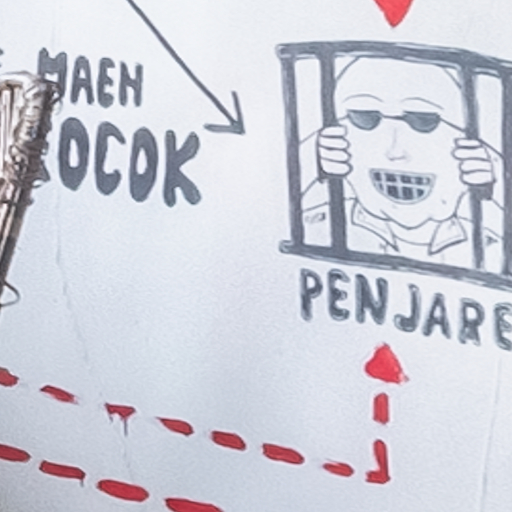 MAEN
OCOK
PENJARE